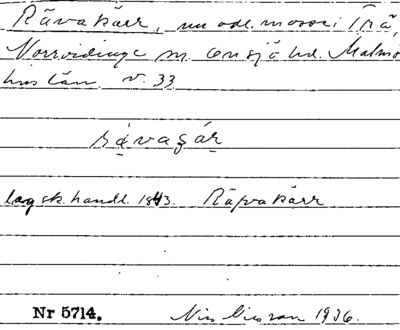 Rävakärr, nu odl. mosse i Trä,
Norrvidinge sn. Onsjö hd. Malmö
hus län. v. 33
rävaçär
lagsk. handl. 1843. Räfvakärr
Nr 5714. Nils 1936.